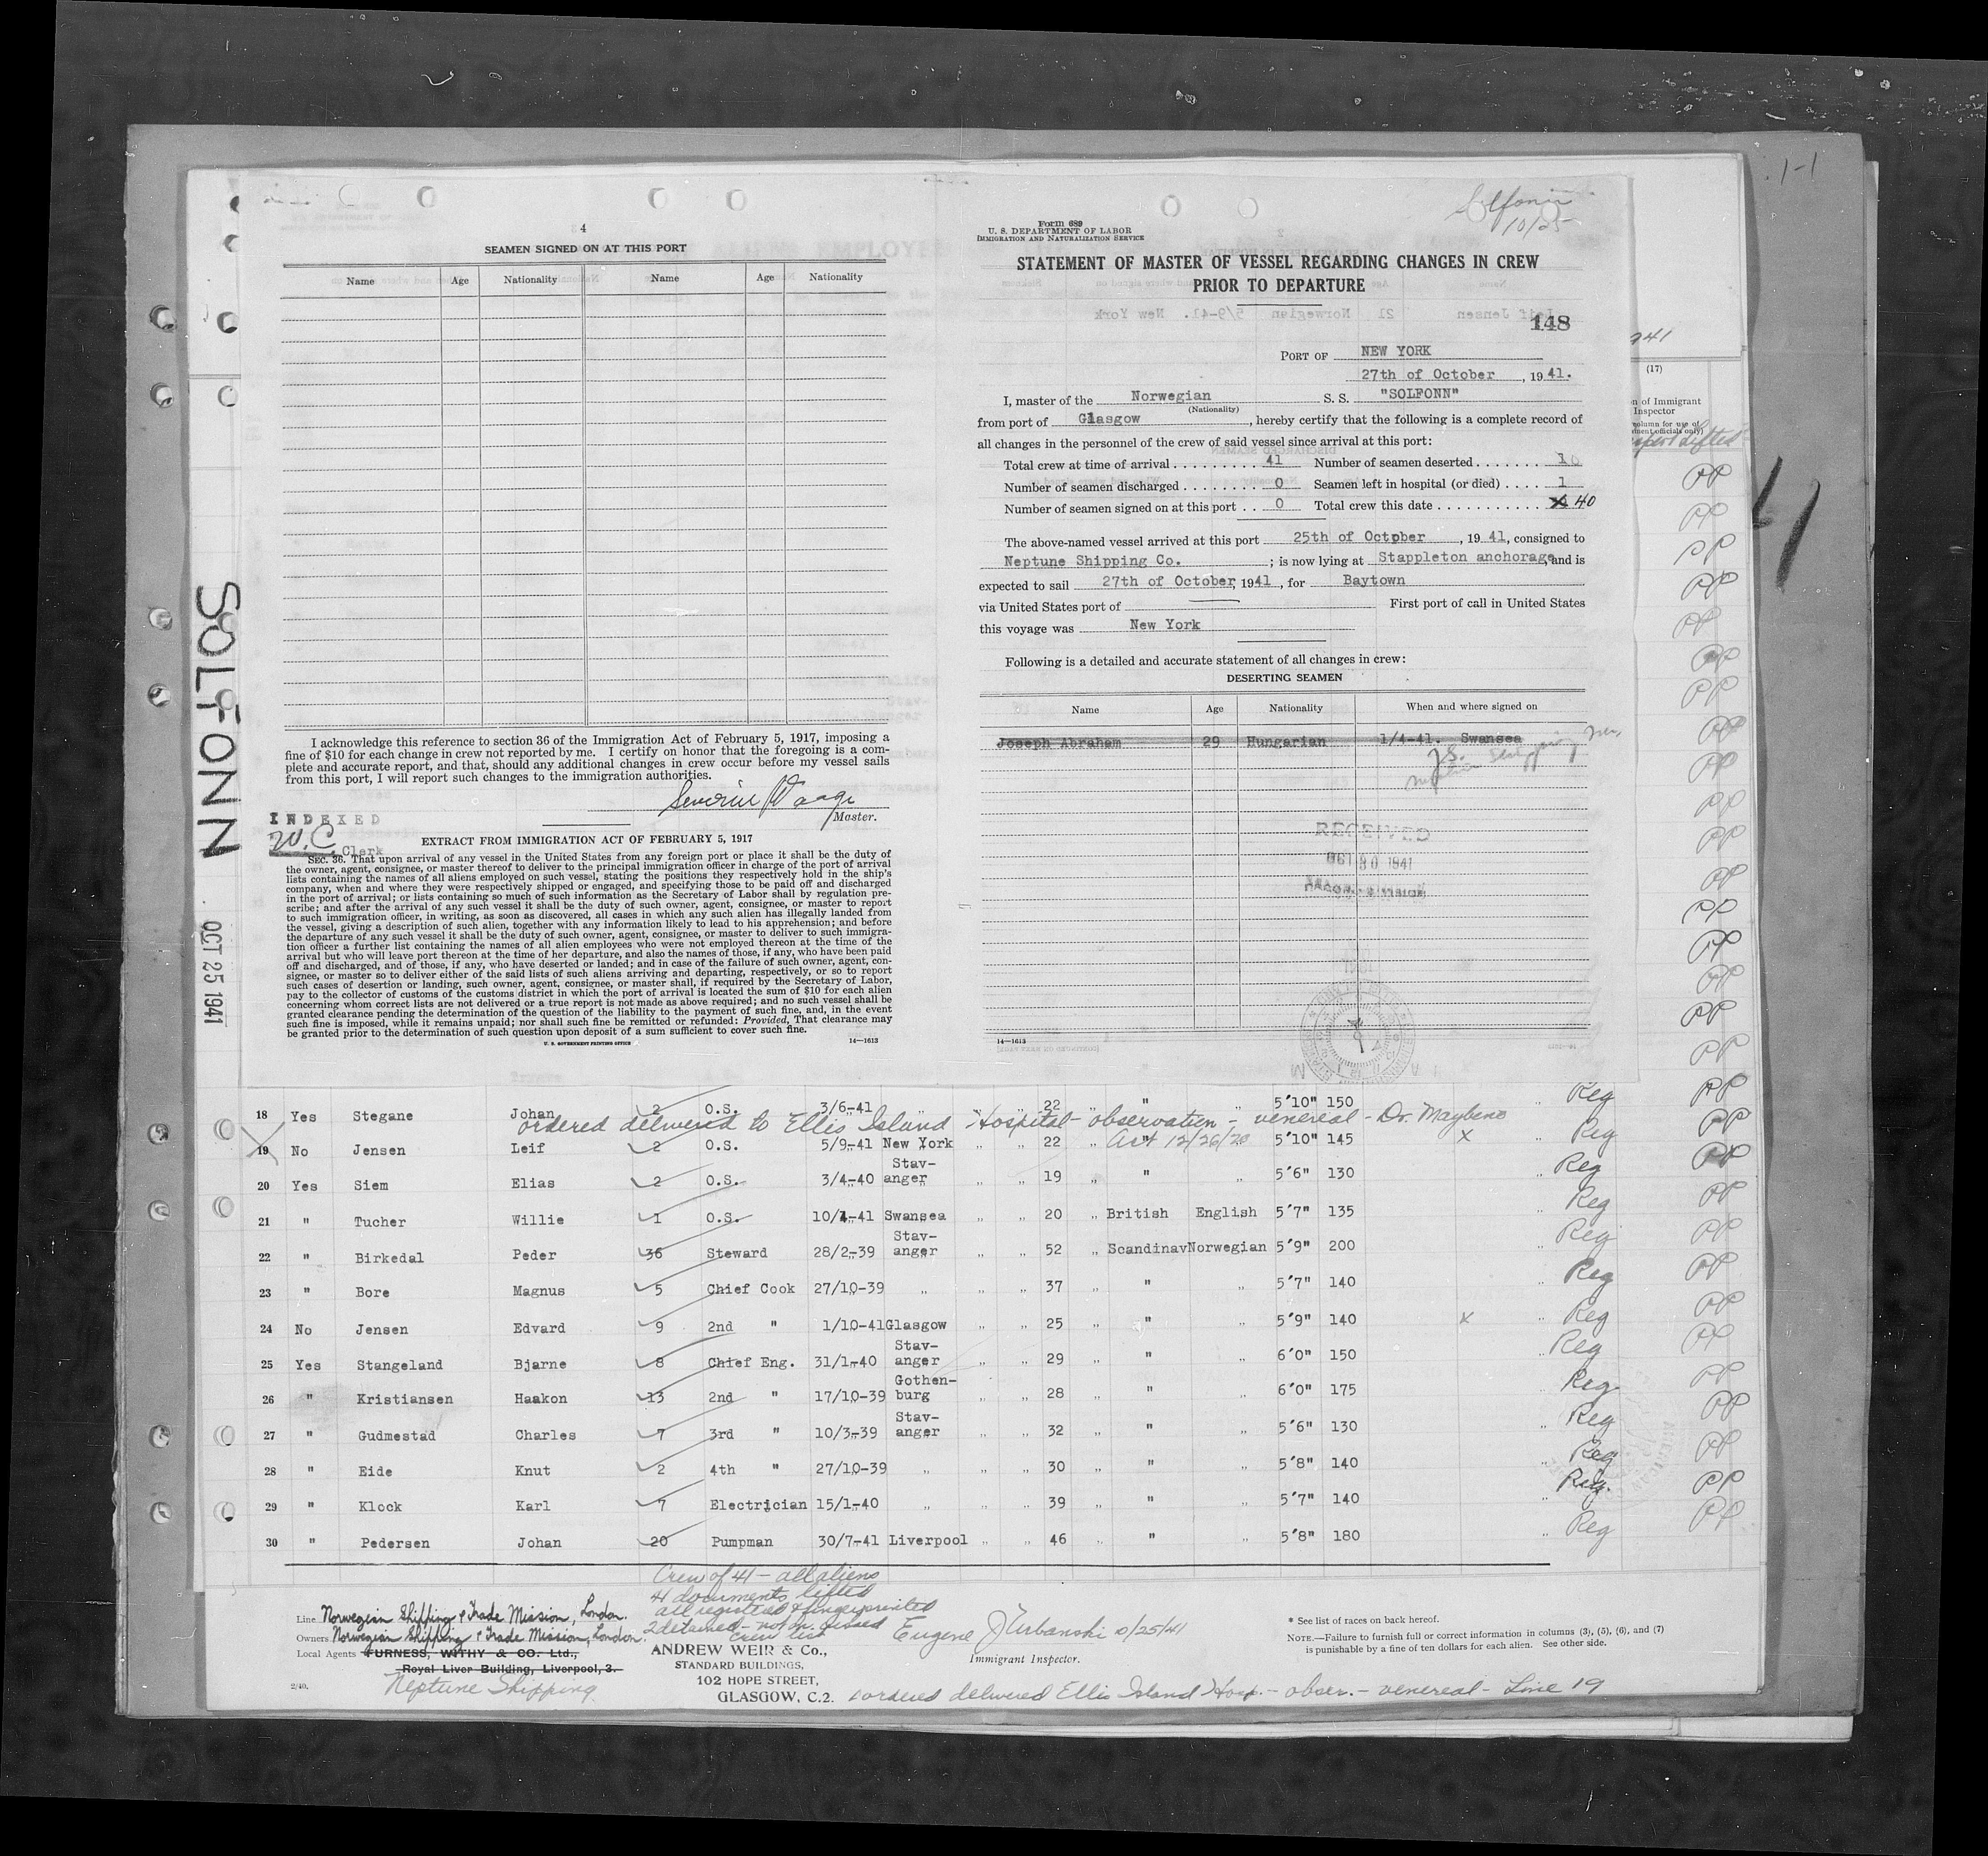 4
SEAMEN SIGNED ON AT THIS PORT
Name Age Nationality Name Age Nationality
I acknowledge this reference to section 36 of the Immigration Act of February 5, 1917, imposing a
fine of $10 for each change in crew not reported by me. I certify on honor that the foregoing is a com-
plete and accurate report, and that, should any additional changes in crew occur before my vessel sails
from this port, I will report such changes to the immigration authorities.
Master.
INDEXED
W.C. Clerk
EXTRACT FROM IMMIGRATION ACT OF FEBRUARY 5, 1917
SEC. 36. That upon arrival of any vessel in the United States from any foreign port or place it shall be the duty of
the owner, agent, consignee, or master thereof to deliver to the principal immigration officer in charge of the port of arrival
lists containing the names of all aliens employed on such vessel, stating the positions they respectively hold in the ship's
company, when and where they were respectively shipped or engaged, and specifying those to be paid off and discharged
in the port of arrival; or lists containing so much of such information as the Secretary of Labor shall by regulation pre-
scribe; and after the arrival of any such vessel it shall be the duty of such owner, agent, consignee, or master to report
to such immigration officer, in writing, as soon as discovered, all cases in which any such alien has illegally landed from
the vessel, giving a description of such alien, together with any information likely to lead to his apprehension; and before
the departure of any such vessel it shall be the duty of such owner, agent, consignee, or master to deliver to such immigra-
tion officer a further list containing the names of all alien employees who were not employed thereon at the time of the
arrival but who will leave port thereon at the time of her departure, and also the names of those, if any, who have been paid
off and discharged, and of those, if any, who have deserted or landed; and in case of the failure of such owner, agent, con-
signee, or master so to deliver either of the said lists of such aliens arriving and departing, respectively, or so to report
such cases of desertion or landing, such owner, agent, consignee, or master shall, if required by the Secretary of Labor,
pay to the collector of customs of the customs district in which the port of arrival is located the sum of $10 for each alien
concerning whom correct lists are not delivered or a true report is not made as above required; and no such vessel shall be
granted clearance pending the determination of the question of the liability to the payment of such fine, and, in the event
such fine is imposed, while it remains unpaid; nor shall such fine be remitted or refunded: Provided, That clearance may
be granted prior to the determination of such question upon deposit of a sum sufficient to cover such fine.
U. S. GOVERNMENT PRINTING OFFICE 14—1613
SOLFONN
OCT 25 1941
Solfonn
10/25
Form 689
U. S. DEPARTMENT OF LABOR
IMMIGRATION AND NATURALIZATION SERVICE
STATEMENT OF MASTER OF VESSEL REGARDING CHANGES IN CREW
PRIOR TO DEPARTURE
148
PORT OF NEW YORK
27th of October, 1941.
I, master of the Norwegian S. S. "SOLFONN"
(Nationality)
from port of Glasgow, hereby certify that the following is a complete record of
all changes in the personnel of the crew of said vessel since arrival at this port:
Total crew at time of arrival 41 Number of seamen deserted 0
Number of seamen discharged 0 Seamen left in hospital (or died) 1
Number of seamen signed on at this port 0 Total crew this date 40
The above-named vessel arrived at this port 25th of October, 1941, consigned to
Neptune Shipping Co. ; is now lying at Stappleton anchorage, and is
expected to sail 27th of October, 1941, for Baytown
via United States port of First port of call in United States
this voyage was New York
Following is a detailed and accurate statement of all changes in crew:
DESERTING SEAMEN
Name Age Nationality When and where signed on
Joseph Abraham 29 Hungarian 1/4-41. Swansea
J.S.
RECEIVED
OCT 30 1941
14—1613
941
(17)
n of Immigrant
Inspector
18 Yes Stegane Johan 2 O.S. 3/6-41 " " 22 " " " 5'10" 150 Reg PP
ordered delivered to Ellis Island Hospital - observation - venereal - Dr. Maybeno
19 No Jensen Leif 2 O.S. 5/9-41 New York " " 22 " Act 12/26/20 5'10" 145 x " Reg PP
20 Yes Siem Elias 2 O.S. 3/4-40 Stav-anger " " 19 " " " 5'6" 130 " Reg PP
21 " Tucher Willie 1 O.S. 10/4-41 Swansea " " 20 " British English 5'7" 135 Reg PP
22 " Birkedal Peder 36 Steward 28/2-39 Stav-anger " " 52 " Scandinav Norwegian 5'9" 200 " Reg PP
23 " Bore Magnus 5 Chief Cook 27/10-39 " " " 37 " " " 5'7" 140 " Reg PP
24 No Jensen Edvard 9 2nd " 1/10-41 Glasgow " " 25 " " " 5'9" 140 x " Reg PP
25 Yes Stangeland Bjarne 8 Chief Eng. 31/1-40 Stav-anger " " 29 " " " 6'0" 150 Reg PP
26 " Kristiansen Haakon 13 2nd " 17/10-39 Gothen-burg " " 28 " " " 6'0" 175 Reg PP
27 " Gudmestad Charles 7 3rd " 10/3-39 Stav-anger " " 32 " " " 5'6" 130 " Reg PP
28 " Eide Knut 2 4th " 27/10-39 " " " 30 " " " 5'8" 140 " Reg PP
29 " Klock Karl 7 Electrician 15/1-40 " " " 39 " " " 5'7" 140 " Reg. PP
30 " Pedersen Johan 20 Pumpman 30/7-41 Liverpool " " 46 " " " 5'8" 180 " Reg PP
Crew of 41 - all aliens
41 documents lifted
all registered & fingerprinted
2 detained -
crew list
Line Norwegian Shipping & Trade Mission, London.
Owners Norwegian Shipping & Trade Mission, London.
Local Agents FURNESS, WITHY & CO. Ltd.,
Royal Liver Building, Liverpool, 3.
2/40. Neptune Shipping
ANDREW WEIR & Co.,
STANDARD BUILDINGS,
102 HOPE STREET,
GLASGOW, C.2.
Eugene J Urbanski 10/25/41
Immigrant Inspector.
* See list of races on back hereof.
NOTE.—Failure to furnish full or correct information in columns (3), (5), (6), and (7)
is punishable by a fine of ten dollars for each alien. See other side.
1 ordered delivered Ellis Island Hosp. - obser. - venereal - Line 19